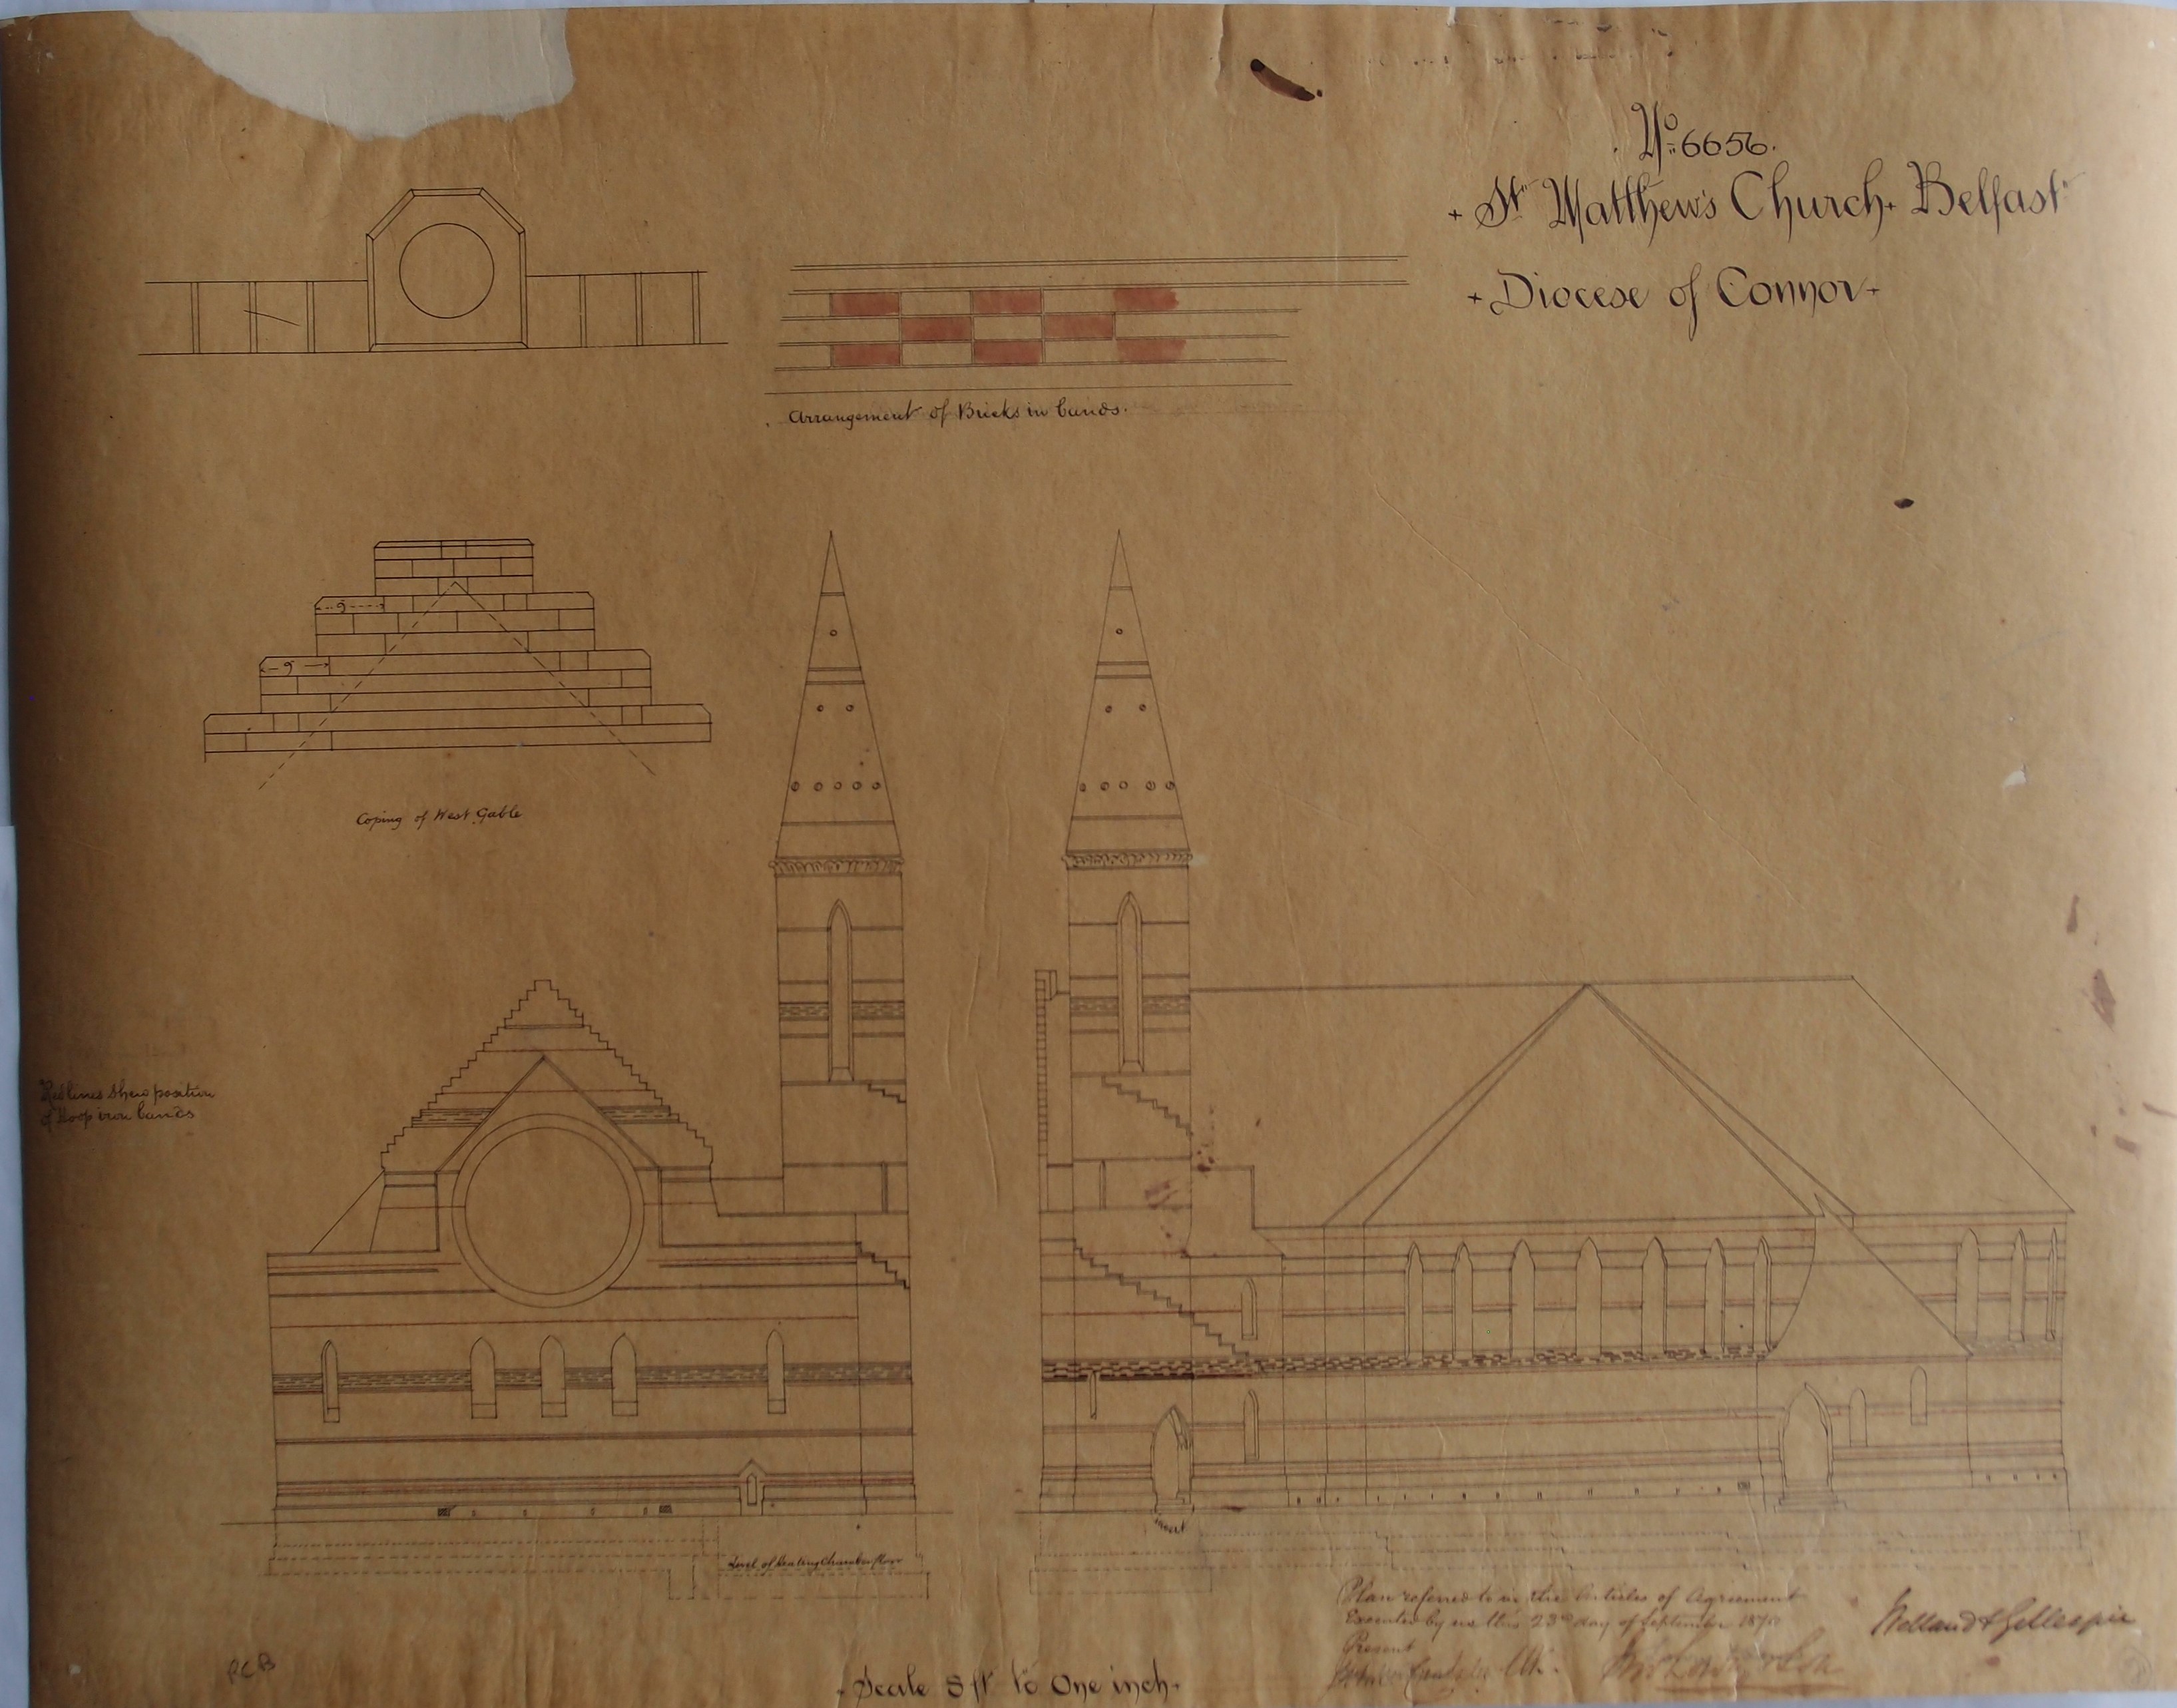 No 6656.
St Matthew's Church. Belfast
Diocese of Connor
Arrangement of Bricks in bands.
9
9
Coping of West Gable
Red lines shew position
of Hoop iron bands
Level of heating Chamber floor
Plan referred to in the Articles of Agreement
Executed by us this 23rd day of September
Present
Welland & Gillespie
RCB
Scale 8 ft to One inch